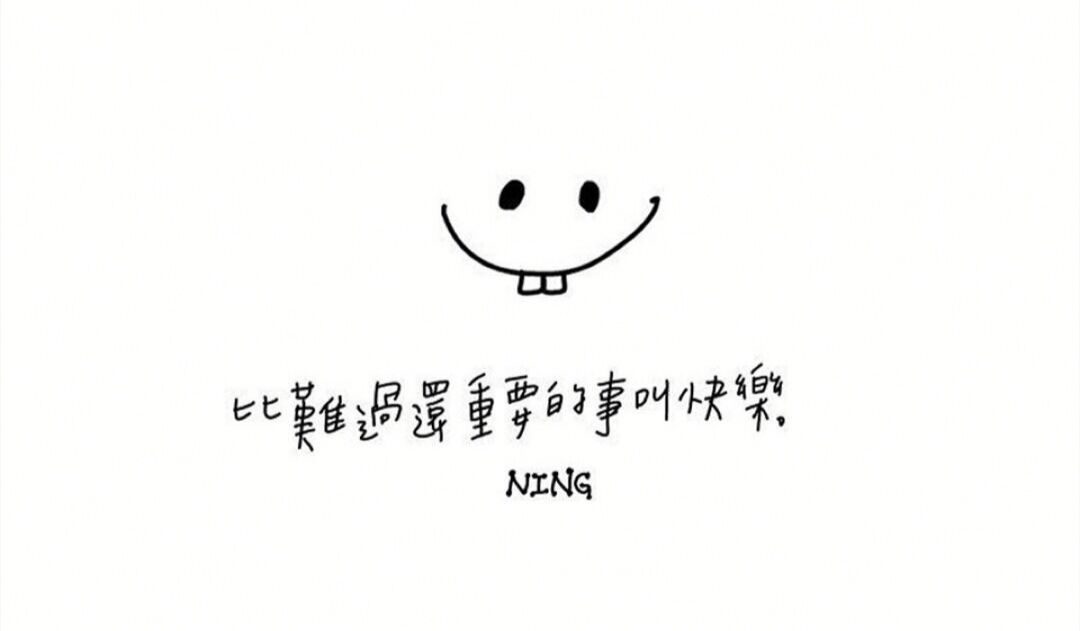 比難過還重要的事叫快樂。
NING